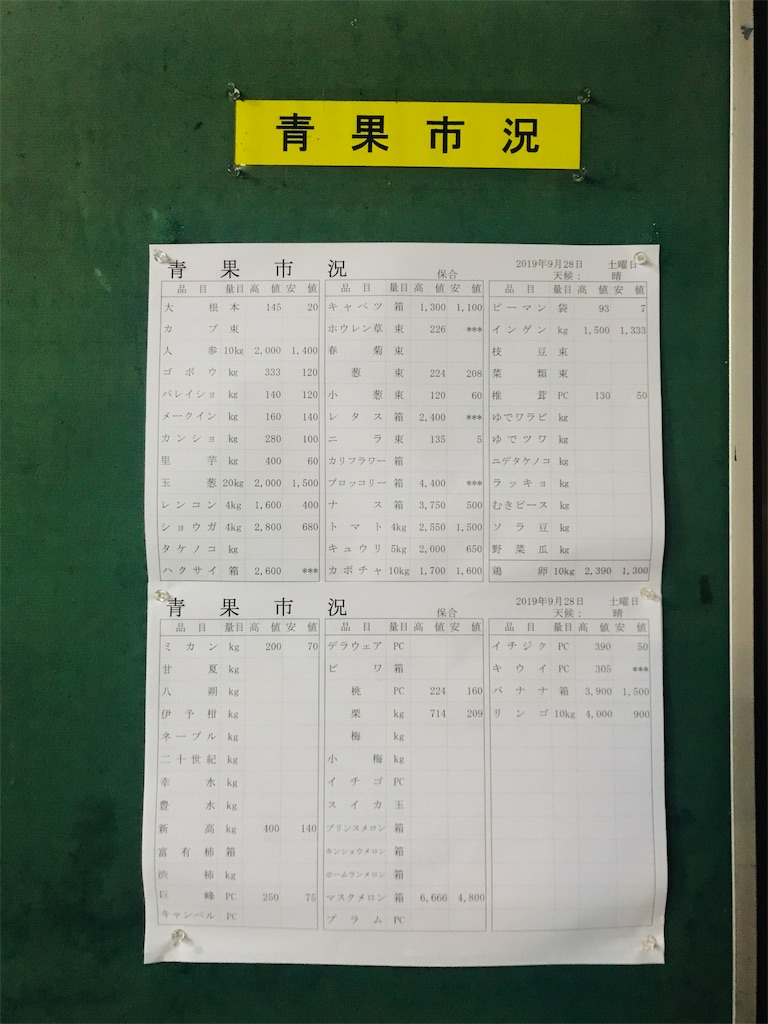 青果市況
青果市況 保合 2019年9月28日 土曜日
天候： 晴
品目 量目 高値 安値 品目 量目 高値 安値 品目 量目 高値 安値
大根 本 145 20 キャベツ 箱 1,300 1,100 ピーマン 袋 93 7
カブ 束 ホウレン草 束 226 *** インゲン kg 1,500 1,333
人参 10kg 2,000 1,400 春菊 束 枝豆 束
ゴボウ kg 333 120 葱 束 224 208 菜類 束
バレイショ kg 140 120 小葱 束 120 60 椎茸 PC 130 50
メークイン kg 160 140 レタス 箱 2,400 *** ゆでワラビ kg
カンショ kg 280 100 ニラ 束 135 5 ゆでツワ kg
里芋 kg 400 60 カリフラワー 箱 ユデタケノコ kg
玉葱 20kg 2,000 1,500 ブロッコリー 箱 4,400 *** ラッキョ kg
レンコン 4kg 1,600 400 ナス 箱 3,750 500 むきピース kg
ショウガ 4kg 2,800 680 トマト 4kg 2,550 1,500 ソラ豆 kg
タケノコ kg キュウリ 5kg 2,000 650 野菜瓜 kg
ハクサイ 箱 2,600 *** カボチャ 10kg 1,700 1,600 鶏卵 10kg 2,390 1,300
青果市況 保合 2019年9月28日 土曜日
天候： 晴
品目 量目 高値 安値 品目 量目 高値 安値 品目 量目 高値 安値
ミカン kg 200 70 デラウェア PC イチジク PC 390 50
甘夏 kg ビワ 箱 キウイ PC 305 ***
八朔 kg 桃 PC 224 160 バナナ 箱 3,900 1,500
伊予柑 kg 栗 kg 714 209 リンゴ 10kg 4,000 900
ネーブル kg 梅 kg
二十世紀 kg 小梅 kg
幸水 kg イチゴ PC
豊水 kg スイカ 玉
新高 kg 400 140 プリンスメロン 箱
富有柿 箱 キンショウメロン 箱
渋柿 kg ホームランメロン 箱
巨峰 PC 250 75 マスクメロン 箱 6,666 4,800
キャンベル PC プラム PC